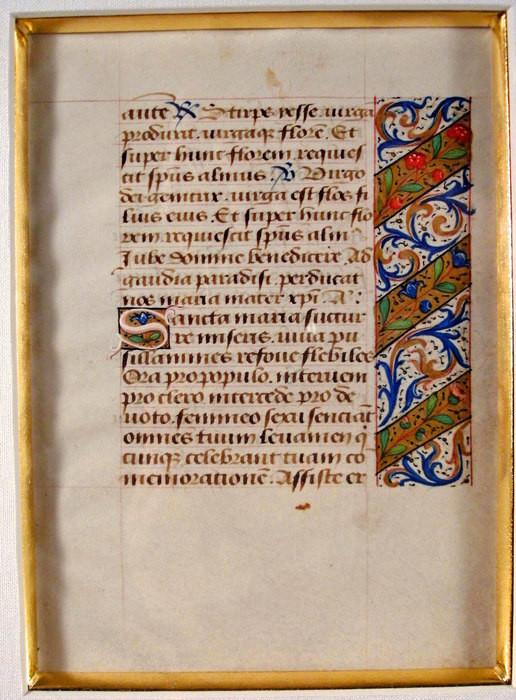 ante R Stirps yesse uirga
produxit. uirgaq flore. Et
super hunc florem requies
cit spūs almus. V Virgo
dei genitrix. uirga est flos fi
lius eius. Et super hunc flo
rem requiescit spūs alm9
Iube domine benedicere. Ad
gaudia paradisi. perducat
nos maria mater xpī. A:
Sancta maria succur
re miseris. iuua pu
sillanimes refoue flebiles
Ora pro populo. interueni
pro clero intercede pro de
uoto. femineo sexu senciāt
omnes tuum leuamen q
cunq celebrant tuam cō
memoratione. Assiste